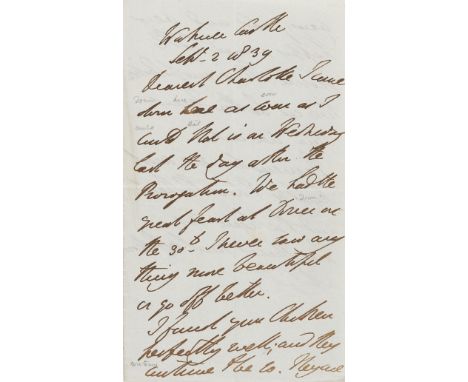 Walmer Castle
Sept 2 1839
Dearest Charlotte I came
down here as soon as I
could that is on Wednesday
last the day after the
Prorogation. We had the
great feast at Dover on
the 30th. I never saw any
thing more beautiful
or go off better.
I found your Children
perfectly well; and they
continue to be so. They are